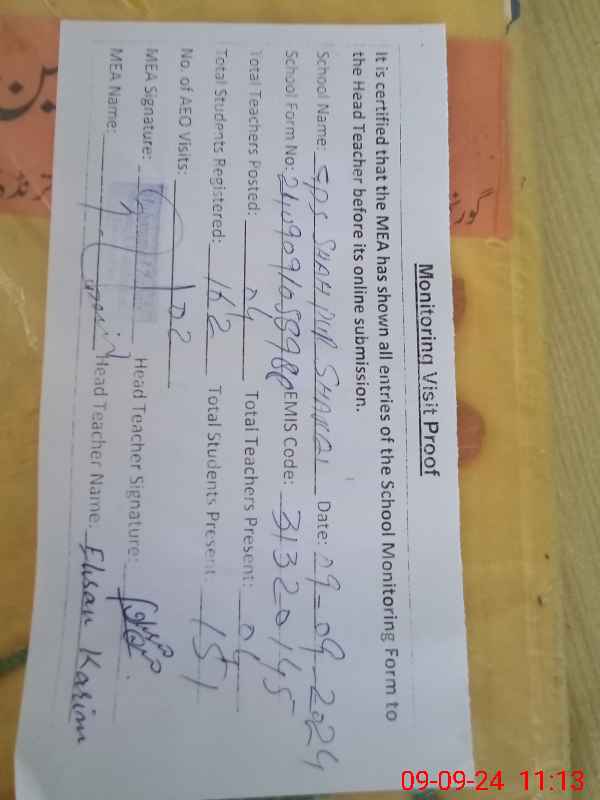 Monitoring Visit Proof
It is certified that the MEA has shown all entries of the School Monitoring Form to
the Head Teacher before its online submission.
School Name: GPS SHAH PUR SHARQI Date: 09-09-2024
School Form No: EMIS Code: 31320145
Total Teachers Posted: 04 Total Teachers Present: 04
Total Students Registered: 162 Total Students Present: 151
No. of AEO Visits: 02
MEA Signature: Head Teacher Signature:
MEA Name: Head Teacher Name: Ehsan Karim
09-09-24 11:13